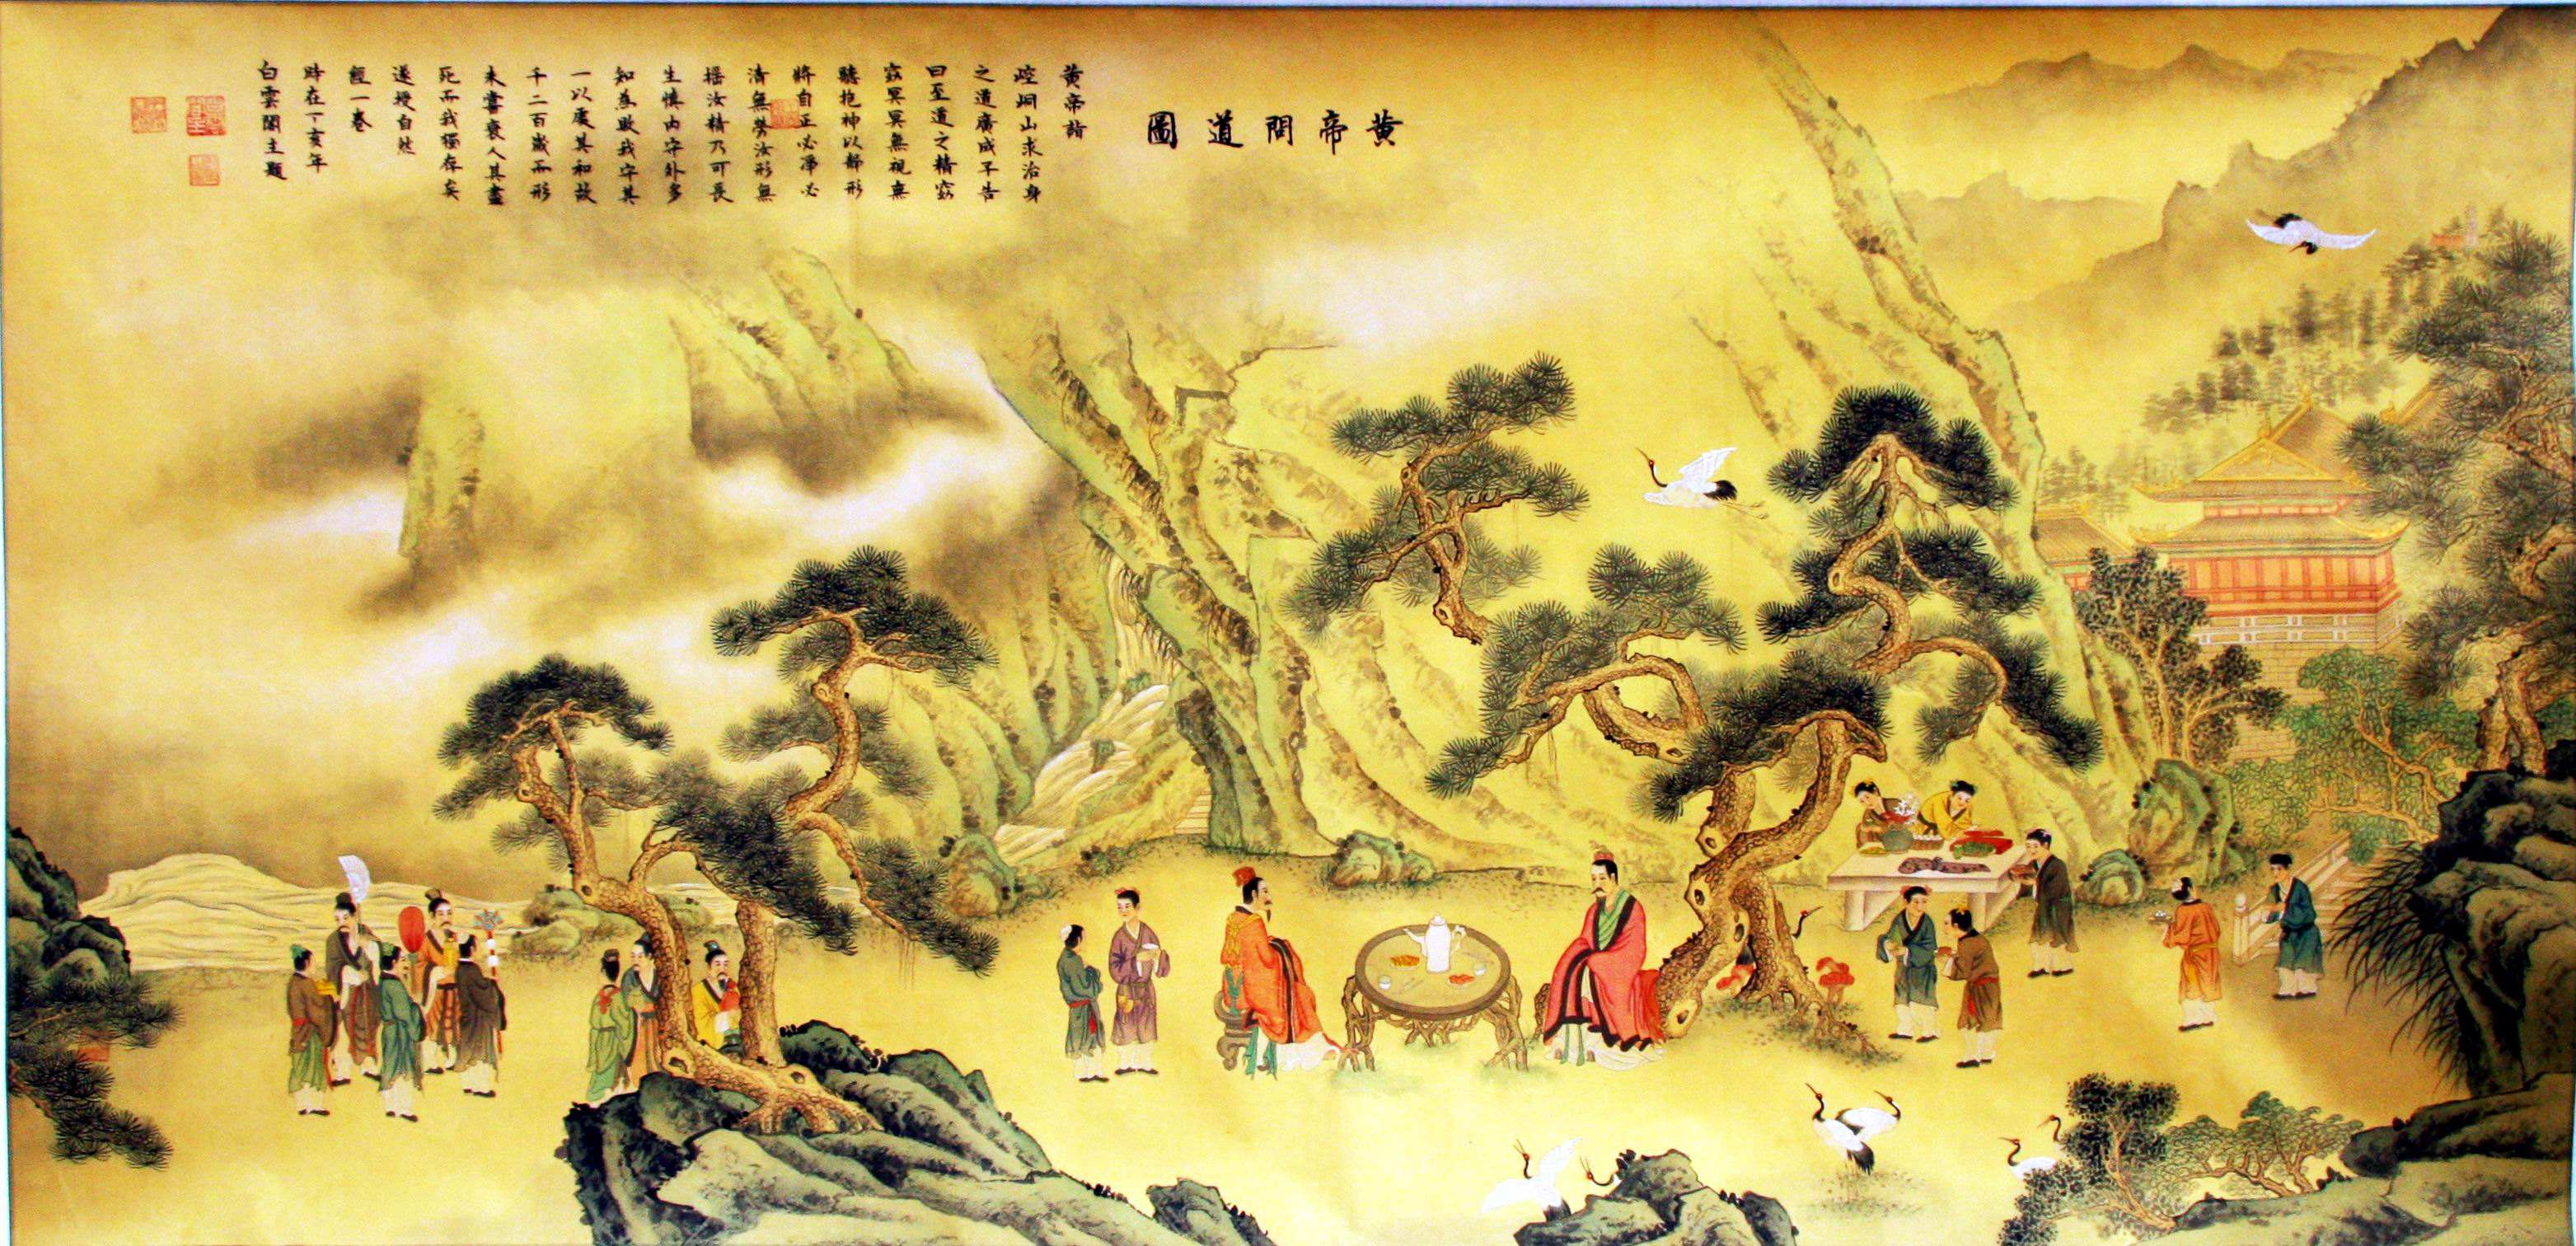 黄帝問道圖
黄帝詣
崆峒山求治身
之道廣成子告
曰至道之精窈
窈冥冥無視無
聽抱神以靜形
將自正必淨必
清無勞汝形無
搖汝精乃可長
生慎内守外多
知為敗我守其
一以處其和故
千二百歲而形
未嘗衰人其盡
死而我獨存矣
遂授自然
經一卷
時在丁亥年
白雲閣主題